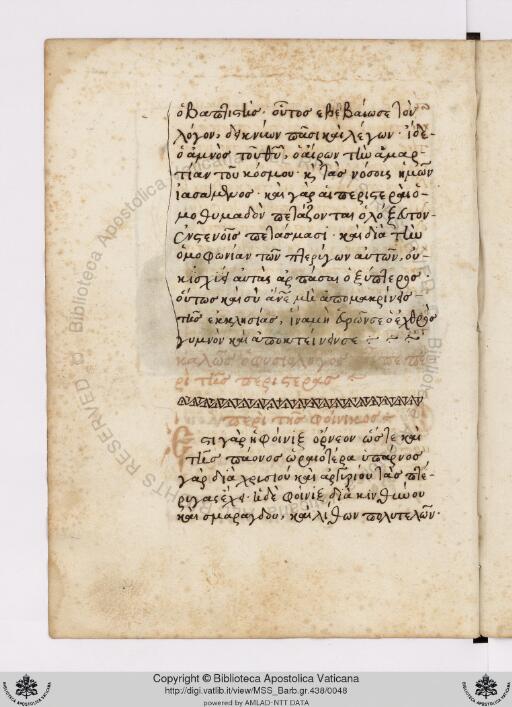 ὁ βαπτιστὴς, οὗτος ἐβεβαίωσε τὸν
λόγον, δεικνύων πᾶσι καὶ λέγων· ἴδε
ὁ ἀμνὸς τοῦ θυ, ὁ αἴρων τὴν ἁμαρ
τίαν τοῦ κόσμου· κ τὰς νόσους ἡμῶν
ἰασάμενος· καὶ γὰρ αἱ περιστεραὶ ὁ
μοθυμαδὸν πετάζονται
πετάσμασι· καὶ διὰ τὴν
ὁμοφωνίαν τῶν πτερύγων αὐτῶν, οὐ
κ ἰσχύει αὐτὰς ἁρπάσαι ὁ ὀξύπτερος·
οὕτως καὶ σὺ ἄνε μὴ ἀπομακρίνεσ
τῆς ἐκκλησίας, ἵνα μὴ εὑρών σε ὁ ἐχθρὸς
γυμνὸν καὶ ἀποκτείνει σε
καλῶς ὁ φυσιολόγος ἔλεξε πε
ρὶ τῆς περιστερᾶς
περὶ τῆς φοίνικος
Ἔστι γὰρ ἡ φοίνιξ ὄρνεον ὥστε καὶ
τῆς παόνος ὡραιοτέρα ὑπάρχει
γὰρ διὰ χρισίου καὶ ἀργυρίου τὰς πτέ
ριγας ἔχει· ἡ δὲ φοίνιξ διὰ κινθίνου
καὶ σμαράγδου, καὶ λίθων πολυτελῶν·
Copyright © Biblioteca Apostolica Vaticana
http://digi.vatlib.it/view/MSS_Barb.gr.438/0048
powered by AMLAD-NTT DATA